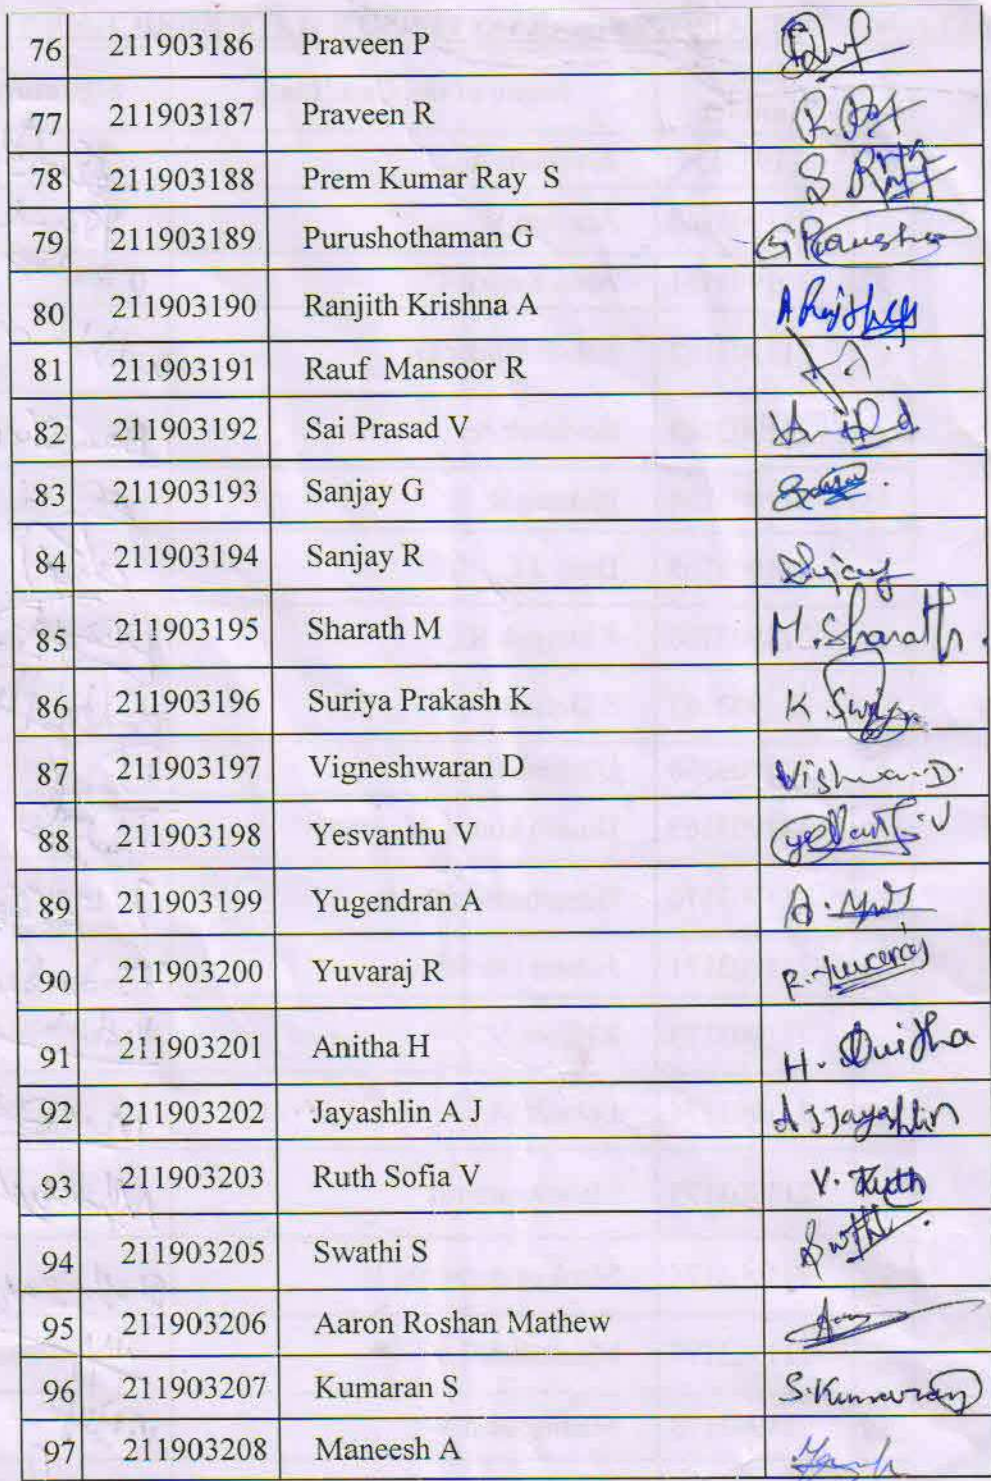 76 211903186 Praveen P
77 211903187 Praveen R
78 211903188 Prem Kumar Ray S S
79 211903189 Purushothaman G G
80 211903190 Ranjith Krishna A A
81 211903191 Rauf Mansoor R
82 211903192 Sai Prasad V
83 211903193 Sanjay G
84 211903194 Sanjay R
85 211903195 Sharath M M. Sharath.
86 211903196 Suriya Prakash K K Suriya
87 211903197 Vigneshwaran D D.
88 211903198 Yesvanthu V V
89 211903199 Yugendran A A
90 211903200 Yuvaraj R R. Yuvaraj
91 211903201 Anitha H H. Anitha
92 211903202 Jayashlin A J A J Jayashlin
93 211903203 Ruth Sofia V V. Ruth
94 211903205 Swathi S
95 211903206 Aaron Roshan Mathew
96 211903207 Kumaran S S. Kumaran
97 211903208 Maneesh A